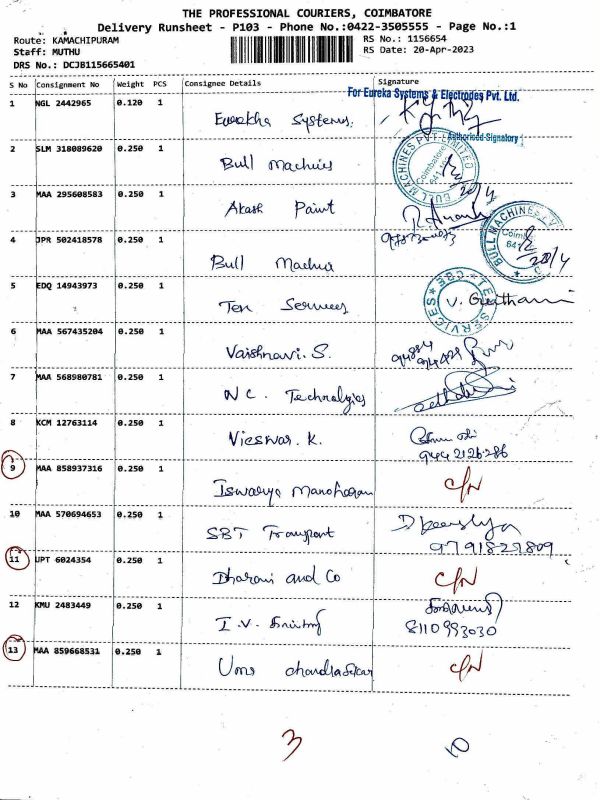 THE PROFESSIONAL COURIERS, COIMBATORE
Delivery Runsheet - P103 - Phone No.:0422-3505555 - Page No.:1
Route: KAMACHIPURAM
RS No.: 1156654
Staff: MUTHU
RS Date: 20-Apr-2023
DRS No.: DCJB115665401
S No Consignment No Weight PCS Consignee Details Signature
For Eureka Systems & Electrodes Pvt. Ltd.
1 NGL 2442965 0.120 1 Eurekha Systems.
Authorised Signatory
2 SLM 318089620 0.250 1 Bull Machines
BULL MACHINES PVT. LIMITED
Coimbatore
20/4
3 MAA 295608583 0.250 1 Akash Paint
R. Ananth
4 JPR 502418578 0.250 1 Bull Machin
BULL MACHINES
20/4
5 EDQ 14943973 0.250 1 Ten Services
CBE TEN SERVICES
6 MAA 567435204 0.250 1 Vaishnavi. S.
7 MAA 568980781 0.250 1 N C. Technolgies
8 KCM 12763114 0.250 1 Vieswar. K.
944 2126286
9 MAA 858937316 0.250 1 Iswarya Manohagan C/N
10 MAA 570694653 0.250 1 SBT Transport
9791827809
11 UPT 6024354 0.250 1 Dharani and Co C/N
12 KMU 2483449 0.250 1 I.V.
8110993030
13 MAA 859668531 0.250 1 Uma chandrasekar C/N
3 10